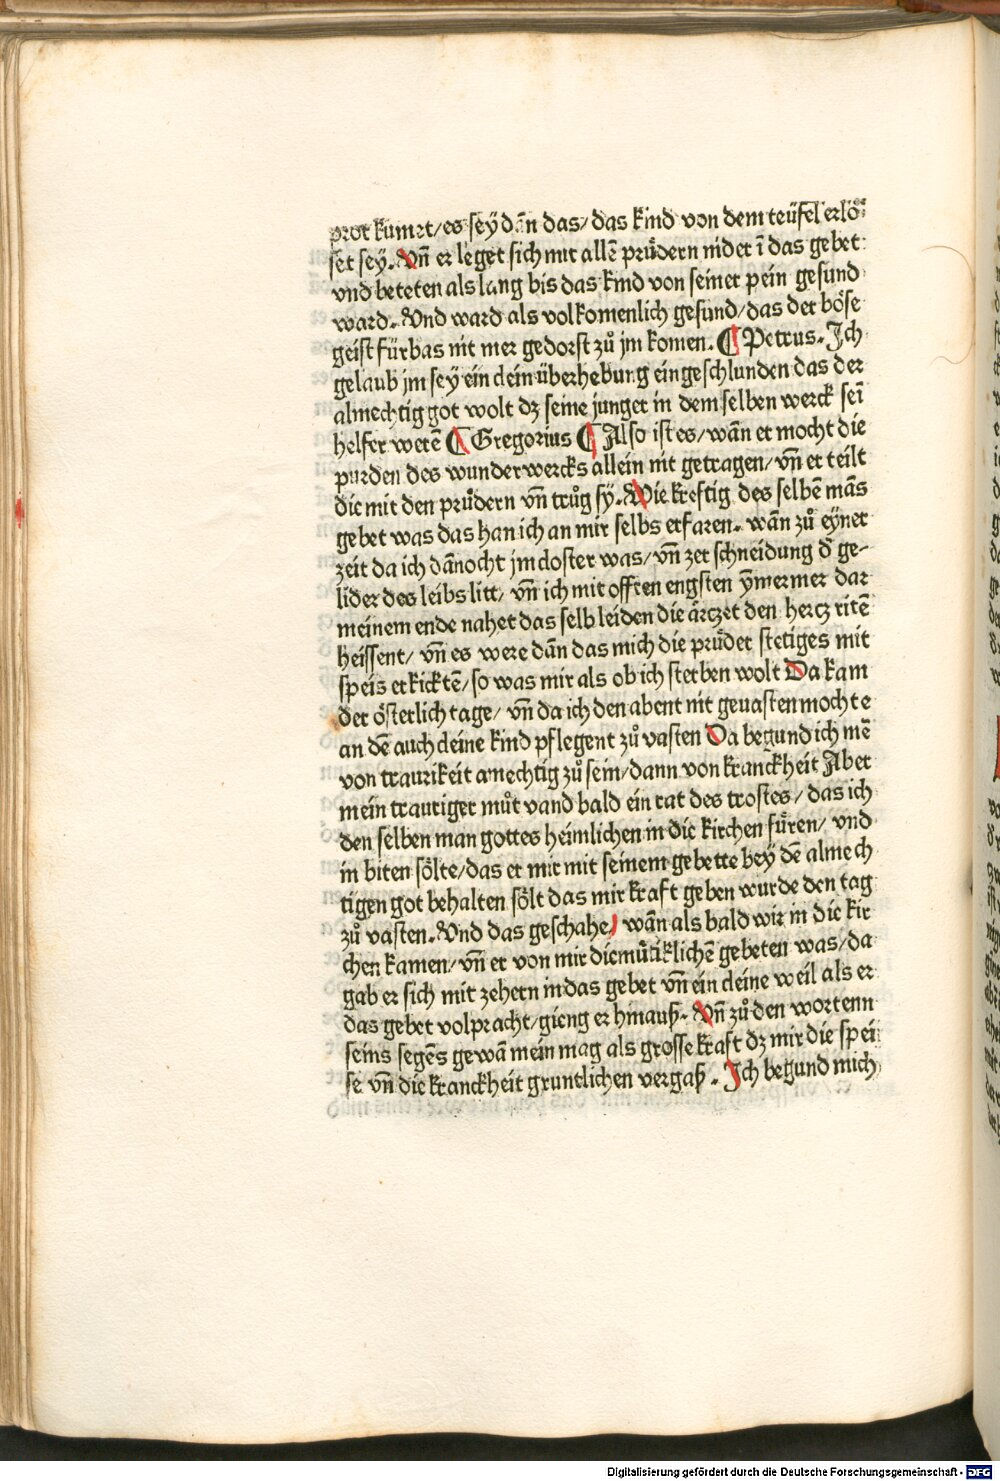 prot kumzt/es sey dān das/das kind von dem teüfel erlö⸗
set sey. Vn̄ er leget sich mit allē průdern nider ī das gebet
vnd beteten als lang bis das kind von seiner pein gesund
ward. Vnd ward als volkomenlich gesund/das der böse
geist fürbas nit mer gedorst zů jm komen. ¶ Petrus. Ich
gelaub jm sey ein clein überhebung eingeschlunden das der
almechtig got wolt dz seine junger in dem selben werck sei̅
helfer werē ¶ Gregorius ¶ Also ist es/wān er mocht die
purden des wunderwercks allein nit getragen/vn̄ er teilt
die mit den průdern vn̄ trůg sy. Wie kreftig des selbē mās
gebet was das han ich an mir selbs erfaren. wān zů eyner
zeit da ich dānocht jm closter was/vn̄ zer schneidung d̄ ge-
lider des leibs litt/vn̄ ich mit offten engsten ȳmermer dar
meinem ende nahet das selb leiden die ärczet den hercz ritē
heissent/vn̄ es were dān das mich die průder stetiges mit
speis erkicktē/so was mir als ob ich sterben wolt Da kam
der österlich tage/vn̄ da ich den abent nit geuasten mochte
an dē auch cleine kind pflegent zů vasten Da begund ich mē
von traurikeit amechtig zů sein/dann von kranckheit Aber
mein trauriger můt vand bald ein rat des trostes/das ich
den selben man gottes heimlichen in die kirchen füren/vnd
in biten sölte/das er mir mit seinem gebette bey dē almech
tigen got behalten sölt das mir kraft geben wurde den tag
zů vasten. Vnd das geschahe/wān als bald wir in die kir
chen kamen/vn̄ er von mir diemůtiklichē gebeten was/da
gab er sich mit zehern in das gebet vn̄ ein cleine weil als er
das gebet volpracht/gieng er hinauß. Vn̄ zů den wortenn
seins segēs gewā mein mag als grosse kraft dz mir die spei
se vn̄ die kranckheit gruntlichen vergaß. Ich begund mich
Digitalisierung gefördert durch die Deutsche Forschungsgemeinschaft - DFG